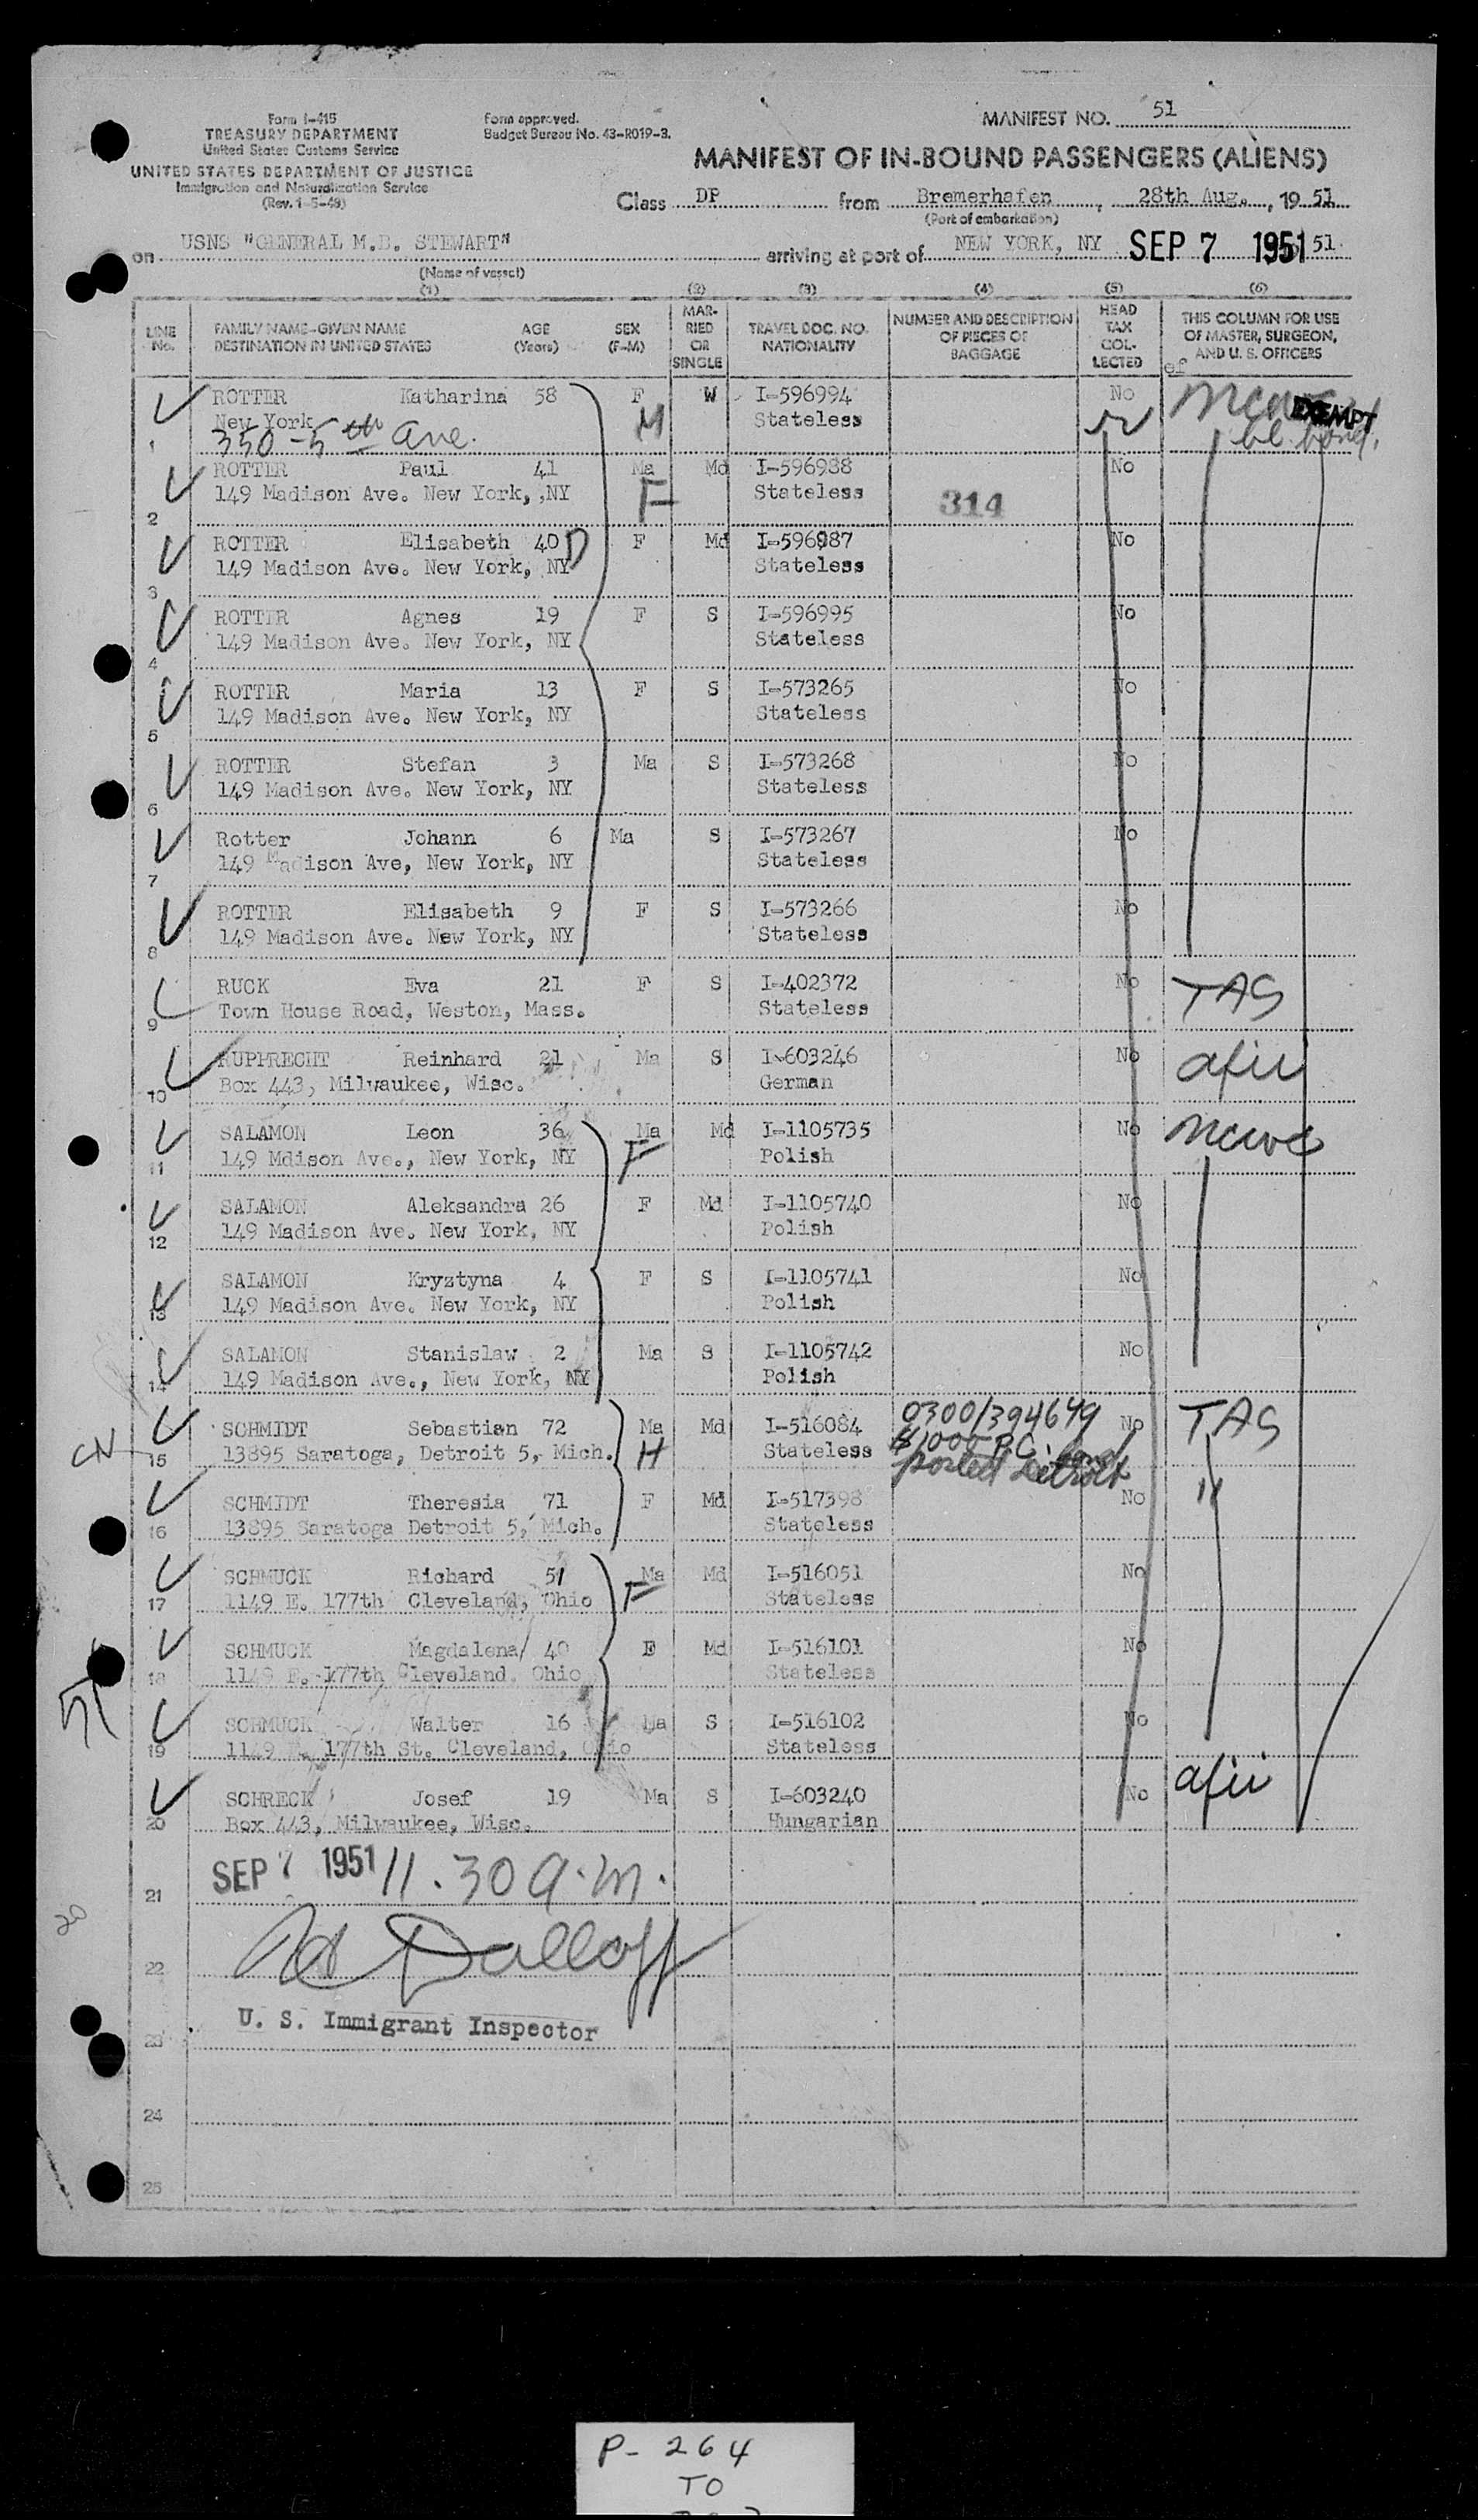 Form I-415
TREASURY DEPARTMENT
United States Customs Service
UNITED STATES DEPARTMENT OF JUSTICE
Immigration and Naturalization Service
(Rev. 1-5-49)
Form approved.
Budget Bureau No. 43-R019-3.
MANIFEST NO. 51
MANIFEST OF IN-BOUND PASSENGERS (ALIENS)
Class DP from Bremerhafen, 28th Aug., 19 51
(Port of embarkation)
on USNS "GENERAL M.B. STEWART" arriving at port of NEW YORK, NY SEP 7 1951 51
(Name of vessel)
(1) (2) (3) (4) (5) (6)
LINE No. FAMILY NAME-GIVEN NAME DESTINATION IN UNITED STATES AGE (Years) SEX (F-M) MARRIED OR SINGLE TRAVEL DOC. NO. NATIONALITY NUMBER AND DESCRIPTION OF PIECES OF BAGGAGE HEAD TAX COLLECTED THIS COLUMN FOR USE OF MASTER, SURGEON, AND U. S. OFFICERS
ROTTER Katharina 58 F W I-596994 No EXEMPT
New York M Stateless
1 350-5th Ave.
ROTTER Paul 41 Ma Md I-596988 No
149 Madison Ave. New York, ,NY F Stateless 314
2
ROTTER Elisabeth 40 D F Md I-596987 No
149 Madison Ave. New York, NY Stateless
3
ROTTER Agnes 19 F S I-596995 No
149 Madison Ave. New York, NY Stateless
4
ROTTER Maria 13 F S I-573265 No
149 Madison Ave. New York, NY Stateless
5
ROTTER Stefan 3 Ma S I-573268 No
149 Madison Ave. New York, NY Stateless
6
Rotter Johann 6 Ma S I-573267 No
149 Madison Ave, New York, NY Stateless
7
ROTTER Elisabeth 9 F S I-573266 No
149 Madison Ave. New York, NY Stateless
8
RUCK Eva 21 F S I-402372 No TAS
Town House Road, Weston, Mass. Stateless
9
RUPPRECHT Reinhard 21 Ma S I-603246 No
Box 443, Milwaukee, Wisc. German
10
SALAMON Leon 36 Ma Md I-1105735 No ncwc
149 Mdison Ave., New York, NY F Polish
11
SALAMON Aleksandra 26 F Md I-1105740 No
149 Madison Ave. New York, NY Polish
12
SALAMON Kryztyna 4 F S I-1105741 No
149 Madison Ave. New York, NY Polish
13
SALAMON Stanislaw 2 Ma S I-1105742 No
149 Madison Ave., New York, NY Polish
14
SCHMIDT Sebastian 72 Ma Md I-516084 0300/394649 No TAS
13895 Saratoga, Detroit 5, Mich. H Stateless $1000 P.C. bond
15 posted Detroit
SCHMIDT Theresia 71 F Md I-517398 No "
13895 Saratoga Detroit 5, Mich. Stateless
16
SCHMUCK Richard 51 Ma Md I-516051 No
1149 E. 177th Cleveland, Ohio F Stateless
17
SCHMUCK Magdalena 40 F Md I-516101 No
1149 E. 177th Cleveland. Ohio Stateless
18
SCHMUCK Walter 16 Ma S I-516102 No
1149 E. 177th St. Cleveland, Ohio Stateless
19
SCHRECK Josef 19 Ma S I-603240 No
Box 443, Milwaukee, Wisc. Hungarian
20
SEP 7 1951 11.30 a.m.
21
22
U. S. Immigrant Inspector
23
24
25
20
P-264
TO